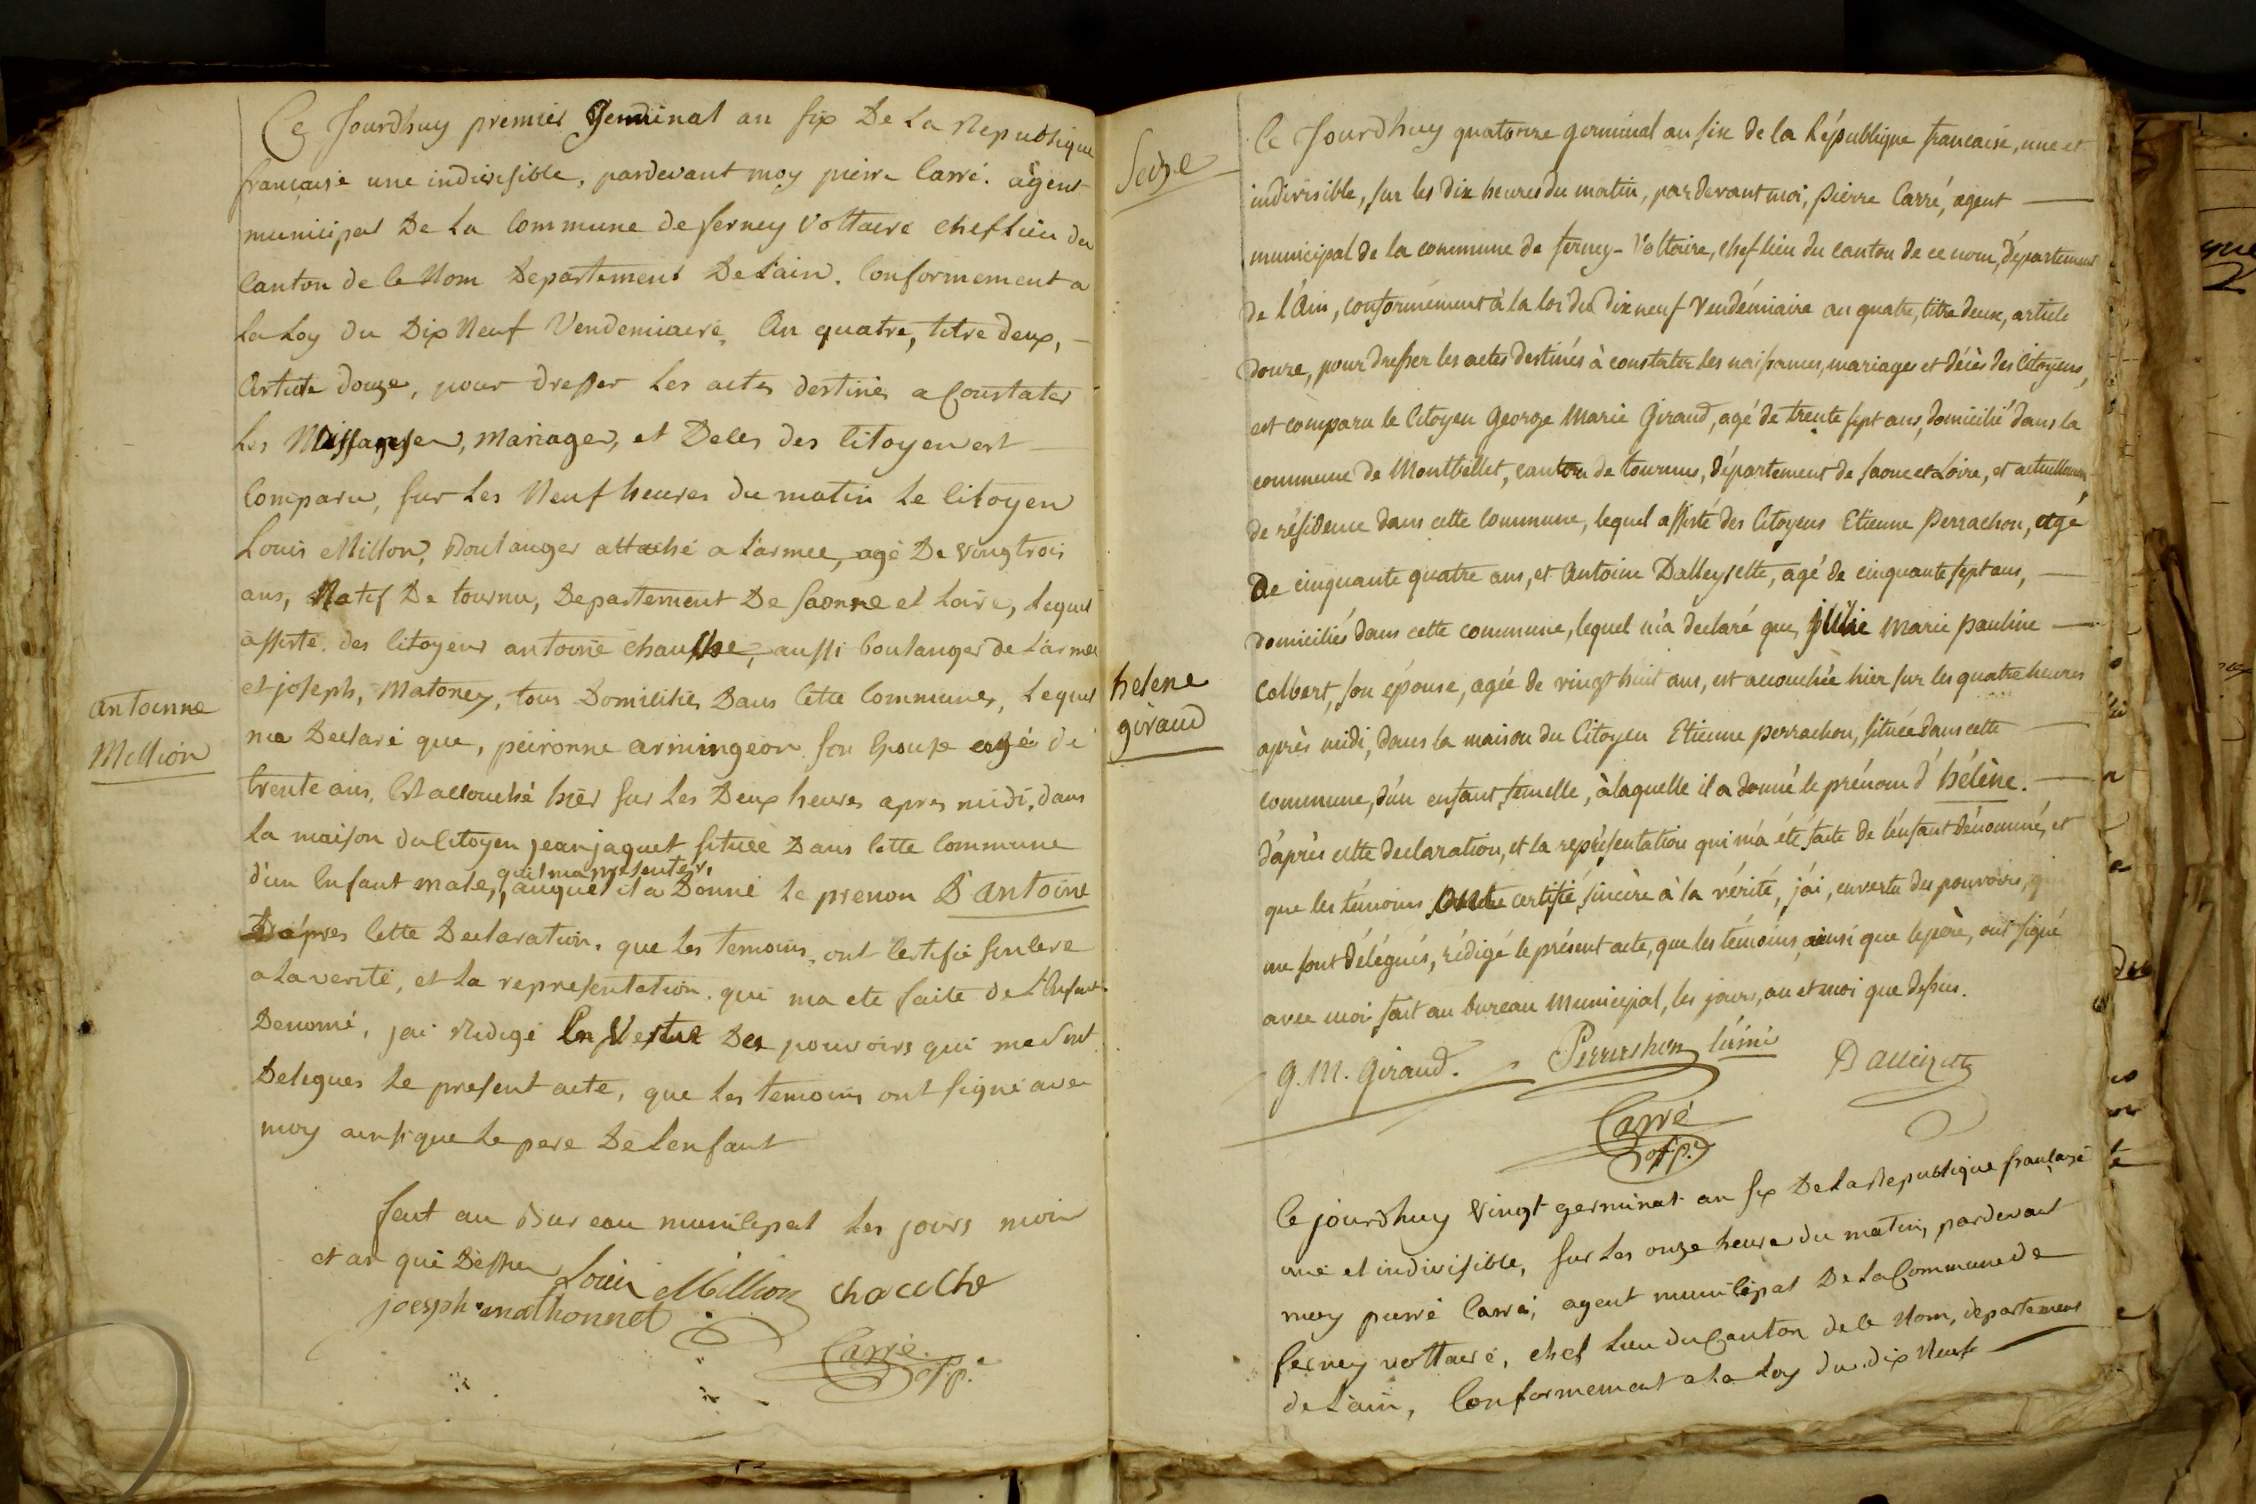 Ce Jourdhuy premier Germinal an six De La Republique
française une indivisible, pardevant moy pierre Carré. agent
municipal De La Commune de ferney Voltaire cheflieu du
Canton de Ce Nom Departement De L'ain. Conformement a
La Loy du Dix Neuf Vendemiaire, An quatre, titre deux,
Article douze, pour dresser Les actes destinés a Constater
Les Naissances, Mariages, et Deces des Citoyens est
Comparu, sur Les Neuf heures du matin Le Citoyen
Louis Million, Boulanger attaché a L'armée, agé De vingtrois
ans, Natif De tournu, Departement De Saonne et Loire, Lequel
assisté. des Citoyens antoine chausse, aussi boulanger de L'armée
et joseph, Matoney, tous Domiciliés Dans Cette Commune, Lequel
ma Declaré que, peironne armingeon son Epouse agé de
trente ans, Est accouché hier sur Les Deux heures apres midi, dans
La maison du Citoyen jean jaquet située Dans Cette Commune
qu'il ma presenter,
d'un Enfant male, auquel il a Donné Le prenon D'antoine
Daprès Cette Declaration, que Les temoins, ont Certifié sincere
a La verité, et La representation. qui ma ete faite de L'Enfant
Denomé, jai Redigé En Vertue Des pouvoirs qui me sont
Delegues Le present acte, que Les temoins ont signé avec
moy ainsi que Le pere De L'enfant
fait au Bureau municipal Les jours mois
et an que Dessus Louis Million chauche
joesph mathonnet
Carré
off. p.
antoinne
Million
Seize
helene
giraud
Ce Jourdhuy quatorze germinal an six de la République française, une et
indivisible, sur les dix heures du matin, pardevant moi, Pierre Carré, agent
municipal de la commune de ferney-Voltaire, chef lieu du canton de ce nom, département
de l'Ain, conformément à la loi du dix neuf Vendémiaire an quatre, titre deux, article
douze, pour dresser les actes destinés à constater les naissances, mariages et décès des Citoyens,
est comparu le Citoyen George Marie Giraud, agé de trente sept ans, domicilié dans la
commune de Montbellet, canton de tournus, département de saone et Loire, et actuellement
de résidence dans cette Commune, lequel assisté des Citoyens Etienne Perrachon, agé
De cinquante quatre ans, et Antoine Dalleysette, agé de cinquante sept ans,
domiciliés dans cette commune, lequel m'a declaré que, Julie Marie Pauline
Colbert, son épouse, agée de vingt huit ans, est accouchée hier sur les quatre heures
après midi, dans la maison du Citoyen Etienne Perrachon, située dans cette
commune, d'un enfant femelle, à laquelle il a donné le prénom d'hélène.
d'après cette declaration, et la représentation qui m'a été faite de l'enfant dénommé, et
que les témoins ont certifié sincère à la vérité, j'ai, en vertu des pouvoirs, qui
me sont délégués, rédigé le présent acte, que les témoins, ainsi que le père, ont signé
avec moi fait au bureau Municipal, les jours, an et moi que dessus.
G. M. Giraud. Perrachon l'ainé
Carré
off. p.
Ce jourdhuy vingt germinal an six De La Republique française
une et indivisible, sur Les onze heures du matin, pardevant
moy pierre Carré, agent municipal De La Commune de
ferney voltaire, chef Lieu du Canton de Ce Nom, departement
de L'ain, Conformement a La Loy du dix Neuf